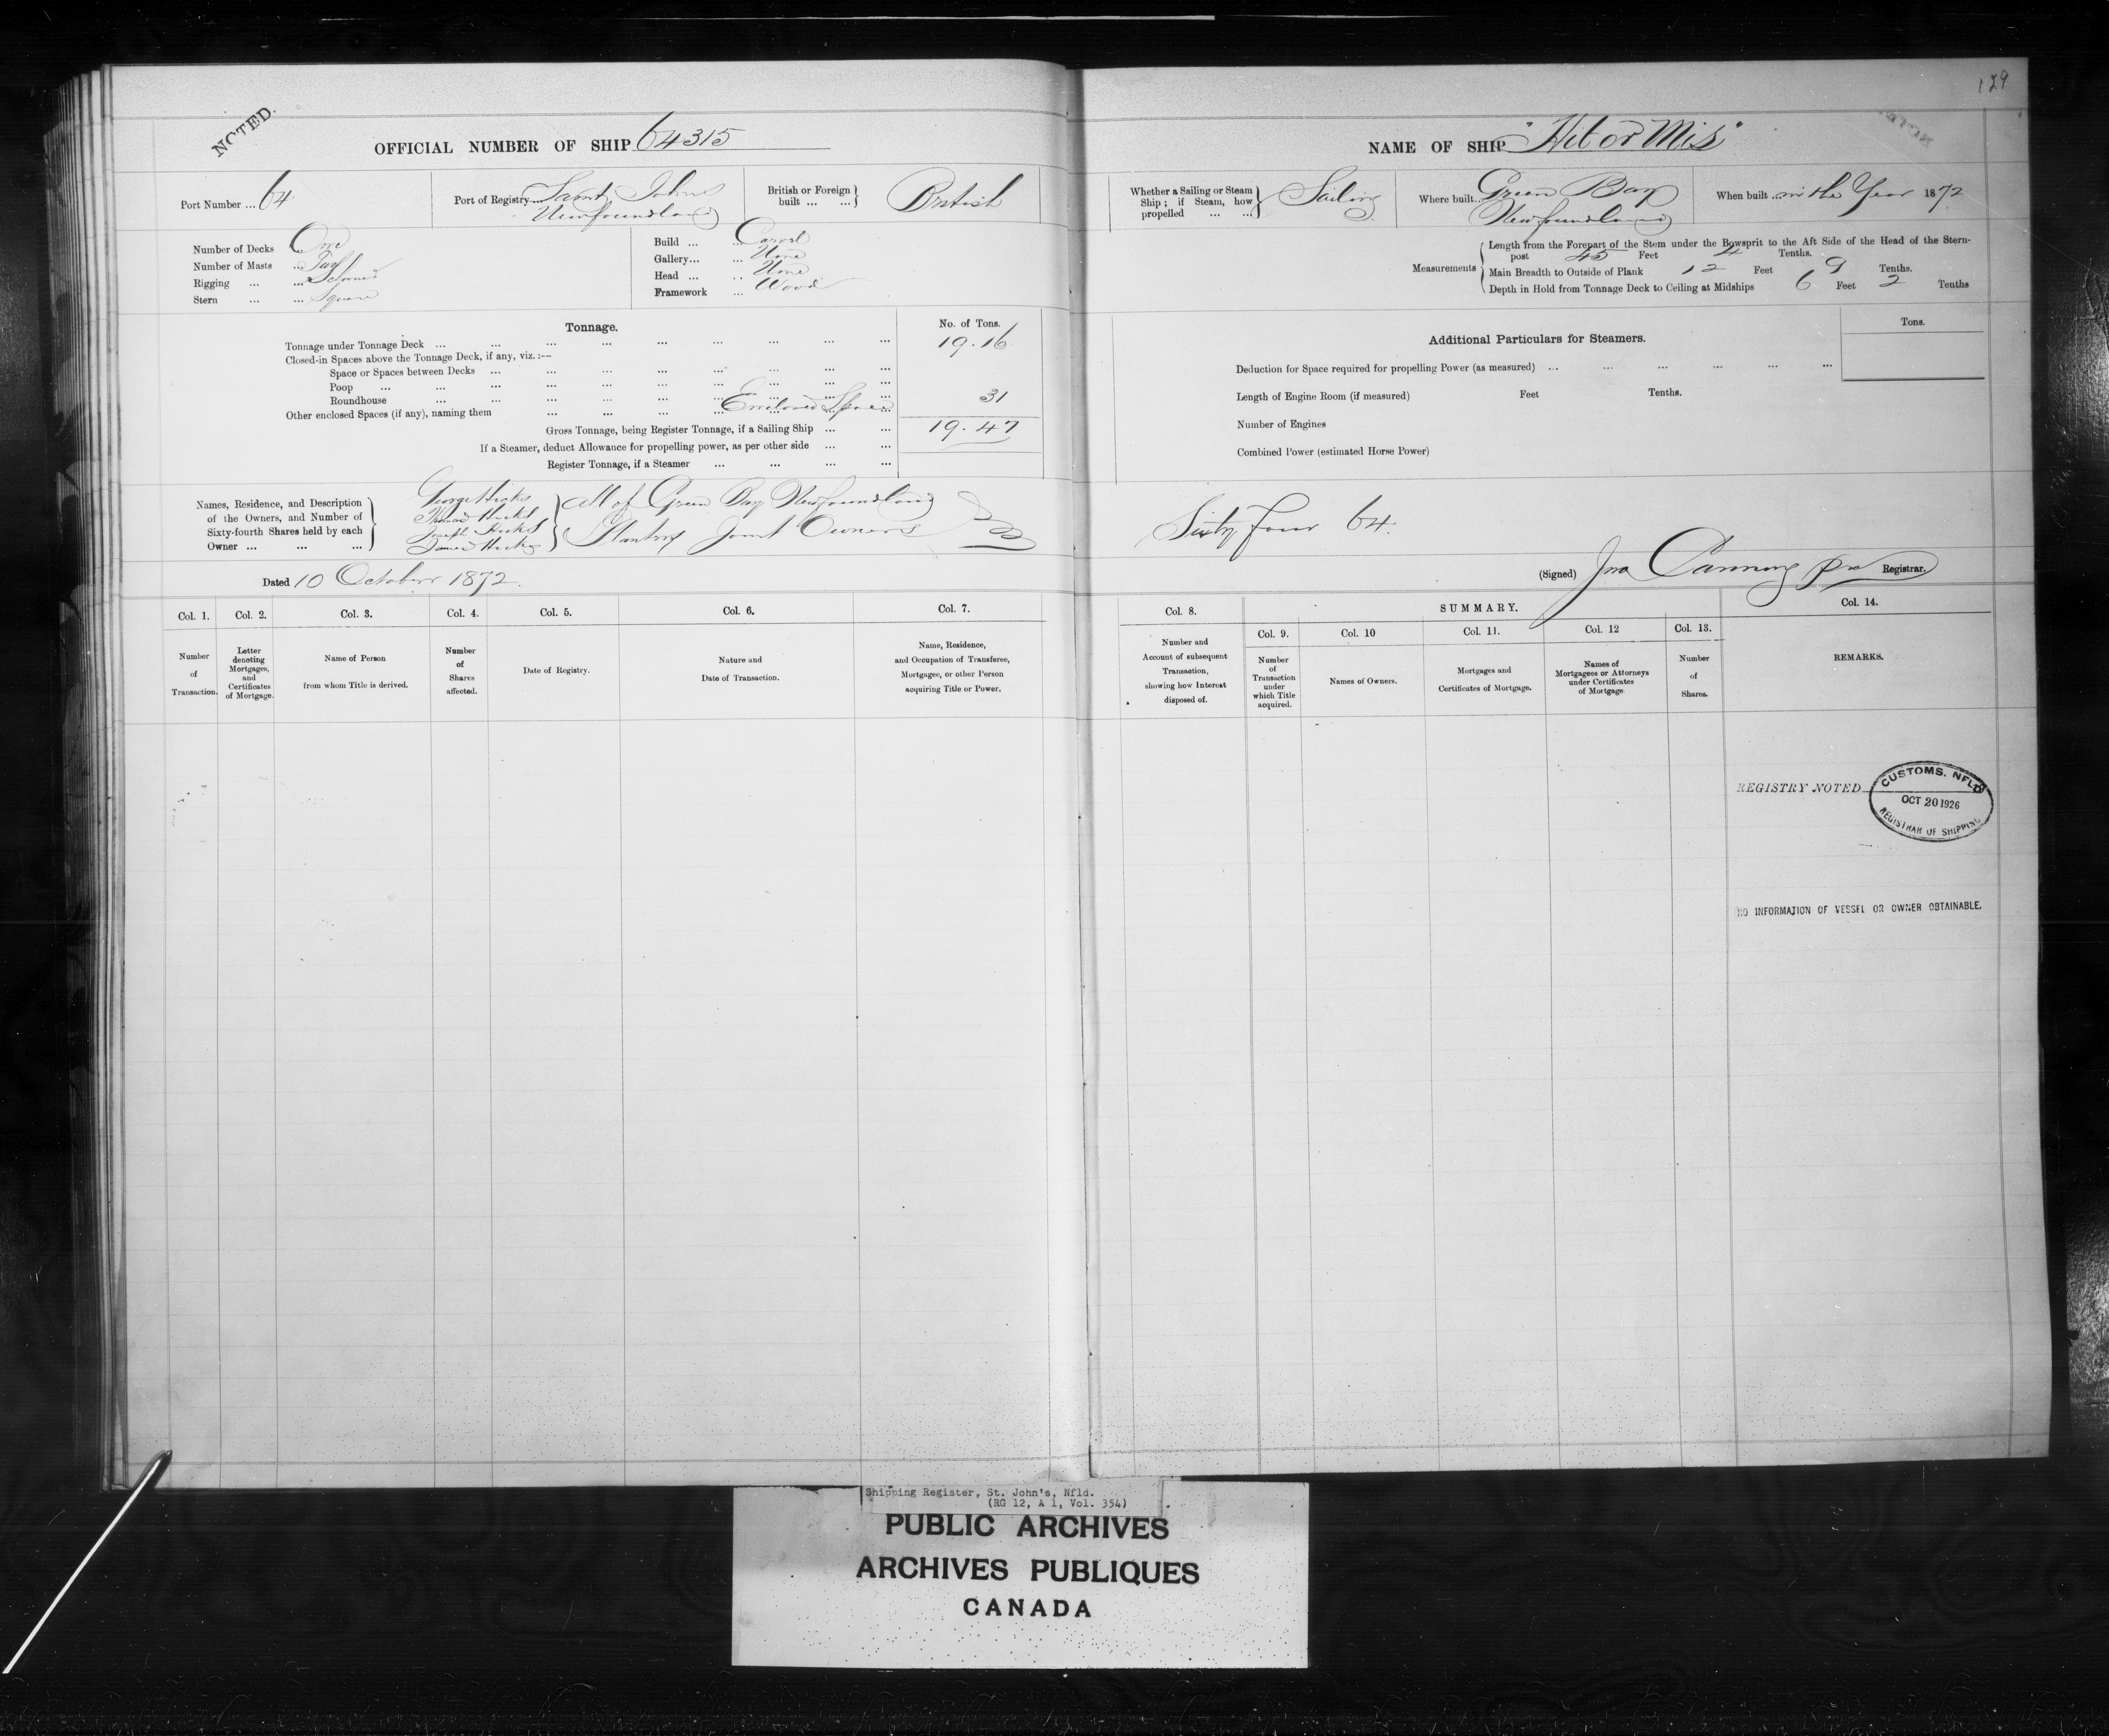 129
NOTED.
OFFICIAL NUMBER OF SHIP 64315
NAME OF SHIP "Hit or Mis"
Port Number ... 64
Port of Registry Saint Johns
Newfoundland
British or Foreign built ... ... British
Whether a Sailing or Steam Ship; if Steam, how propelled ... ... Sailing
Where built... Green Bay
Newfoundland
When built ... in the Year 1872
Number of Decks ... One
Number of Masts ... Two
Rigging ... ... Schooner
Stern ... ... Square
Build ... ... Carvel
Gallery... ... None
Head ... ... None
Framework ... Wood
Measurements
Length from the Forepart of the Stem under the Bowsprit to the Aft Side of the Head of the Stern-
post 45 Feet 4 Tenths.
Main Breadth to Outside of Plank 12 Feet 9 Tenths.
Depth in Hold from Tonnage Deck to Ceiling at Midships 6 Feet 2 Tenths
Tonnage.
No. of Tons.
Tonnage under Tonnage Deck ... ... ... ... ... ... ... ... ... 19.16
Closed-in Spaces above the Tonnage Deck, if any, viz. :—
Space or Spaces between Decks ... ... ... ... ... ... ... ...
Poop ... ... ... ... ... ... ... ... ...
Roundhouse ... ... ... ... ... ... ... ...
Other enclosed Spaces (if any), naming them ... ... ... Enclosed Spaces 31
Gross Tonnage, being Register Tonnage, if a Sailing Ship ... ... 19.47
If a Steamer, deduct Allowance for propelling power, as per other side ... ...
Register Tonnage, if a Steamer ... ... ... ...
Additional Particulars for Steamers.
Tons.
Deduction for Space required for propelling Power (as measured) ... ... ... ... ... ...
Length of Engine Room (if measured) Feet Tenths.
Number of Engines
Combined Power (estimated Horse Power)
Names, Residence, and Description
of the Owners, and Number of
Sixty-fourth Shares held by each
Owner ... ... ...
George Hicks
Thomas Hicks
Joseph Hicks
James Hicks
All of Green Bay Newfoundland
Planters Joint Owners
Sixty four 64.
Dated 10 October 1872.
(Signed) Jno Canning pro Registrar.
Col. 1.
Number
of
Transaction.
Col. 2.
Letter
denoting
Mortgages,
and
Certificates
of Mortgage.
Col. 3.
Name of Person
from whom Title is derived.
Col. 4.
Number
of
Shares
affected.
Col. 5.
Date of Registry.
Col. 6.
Nature and
Date of Transaction.
Col. 7.
Name, Residence,
and Occupation of Transferee,
Mortgagee, or other Person
acquiring Title or Power.
Col. 8.
Number and
Account of subsequent
Transaction,
showing how Interest
disposed of.
SUMMARY.
Col. 9.
Number
of
Transaction
under
which Title
acquired.
Col. 10
Names of Owners.
Col. 11.
Mortgages and
Certificates of Mortgage.
Col. 12
Names of
Mortgagees or Attorneys
under Certificates
of Mortgage
Col. 13.
Number
of
Shares.
Col. 14.
REMARKS.
REGISTRY NOTED
CUSTOMS. NFLD
OCT 20 1926
REGISTRAR OF SHIPPING
NO INFORMATION OF VESSEL OR OWNER OBTAINABLE.
Shipping Register, St. John's, Nfld.
(RG 12, A 1, Vol. 354)
PUBLIC ARCHIVES
ARCHIVES PUBLIQUES
CANADA